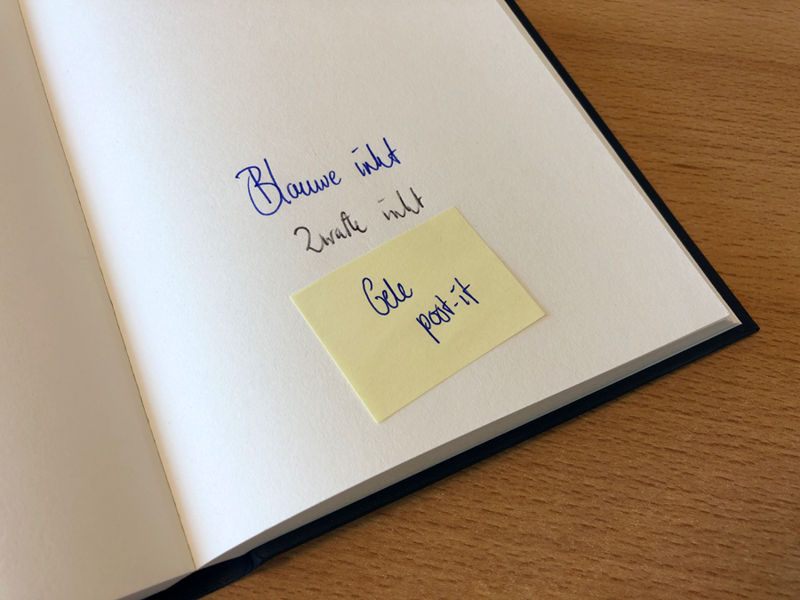 Blauwe inkt
Zwarte inkt
Gele
post-it